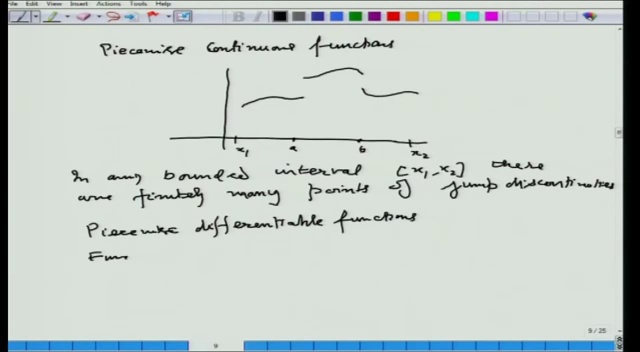 File Edit View Insert Actions Tools Help
B I
Piecewise Continuous functions
x₁ a b x₂
In any bounded interval [x₁, x₂] there
are finitely many points of jump discontinuities
Piecewise differentiable functions
Fun
9 / 25
9